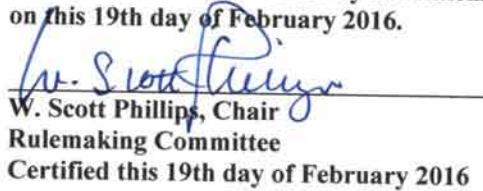 on this 19th day of February 2016.
W. Scott Phillips
W. Scott Phillips, Chair
Rulemaking Committee
Certified this 19th day of February 2016